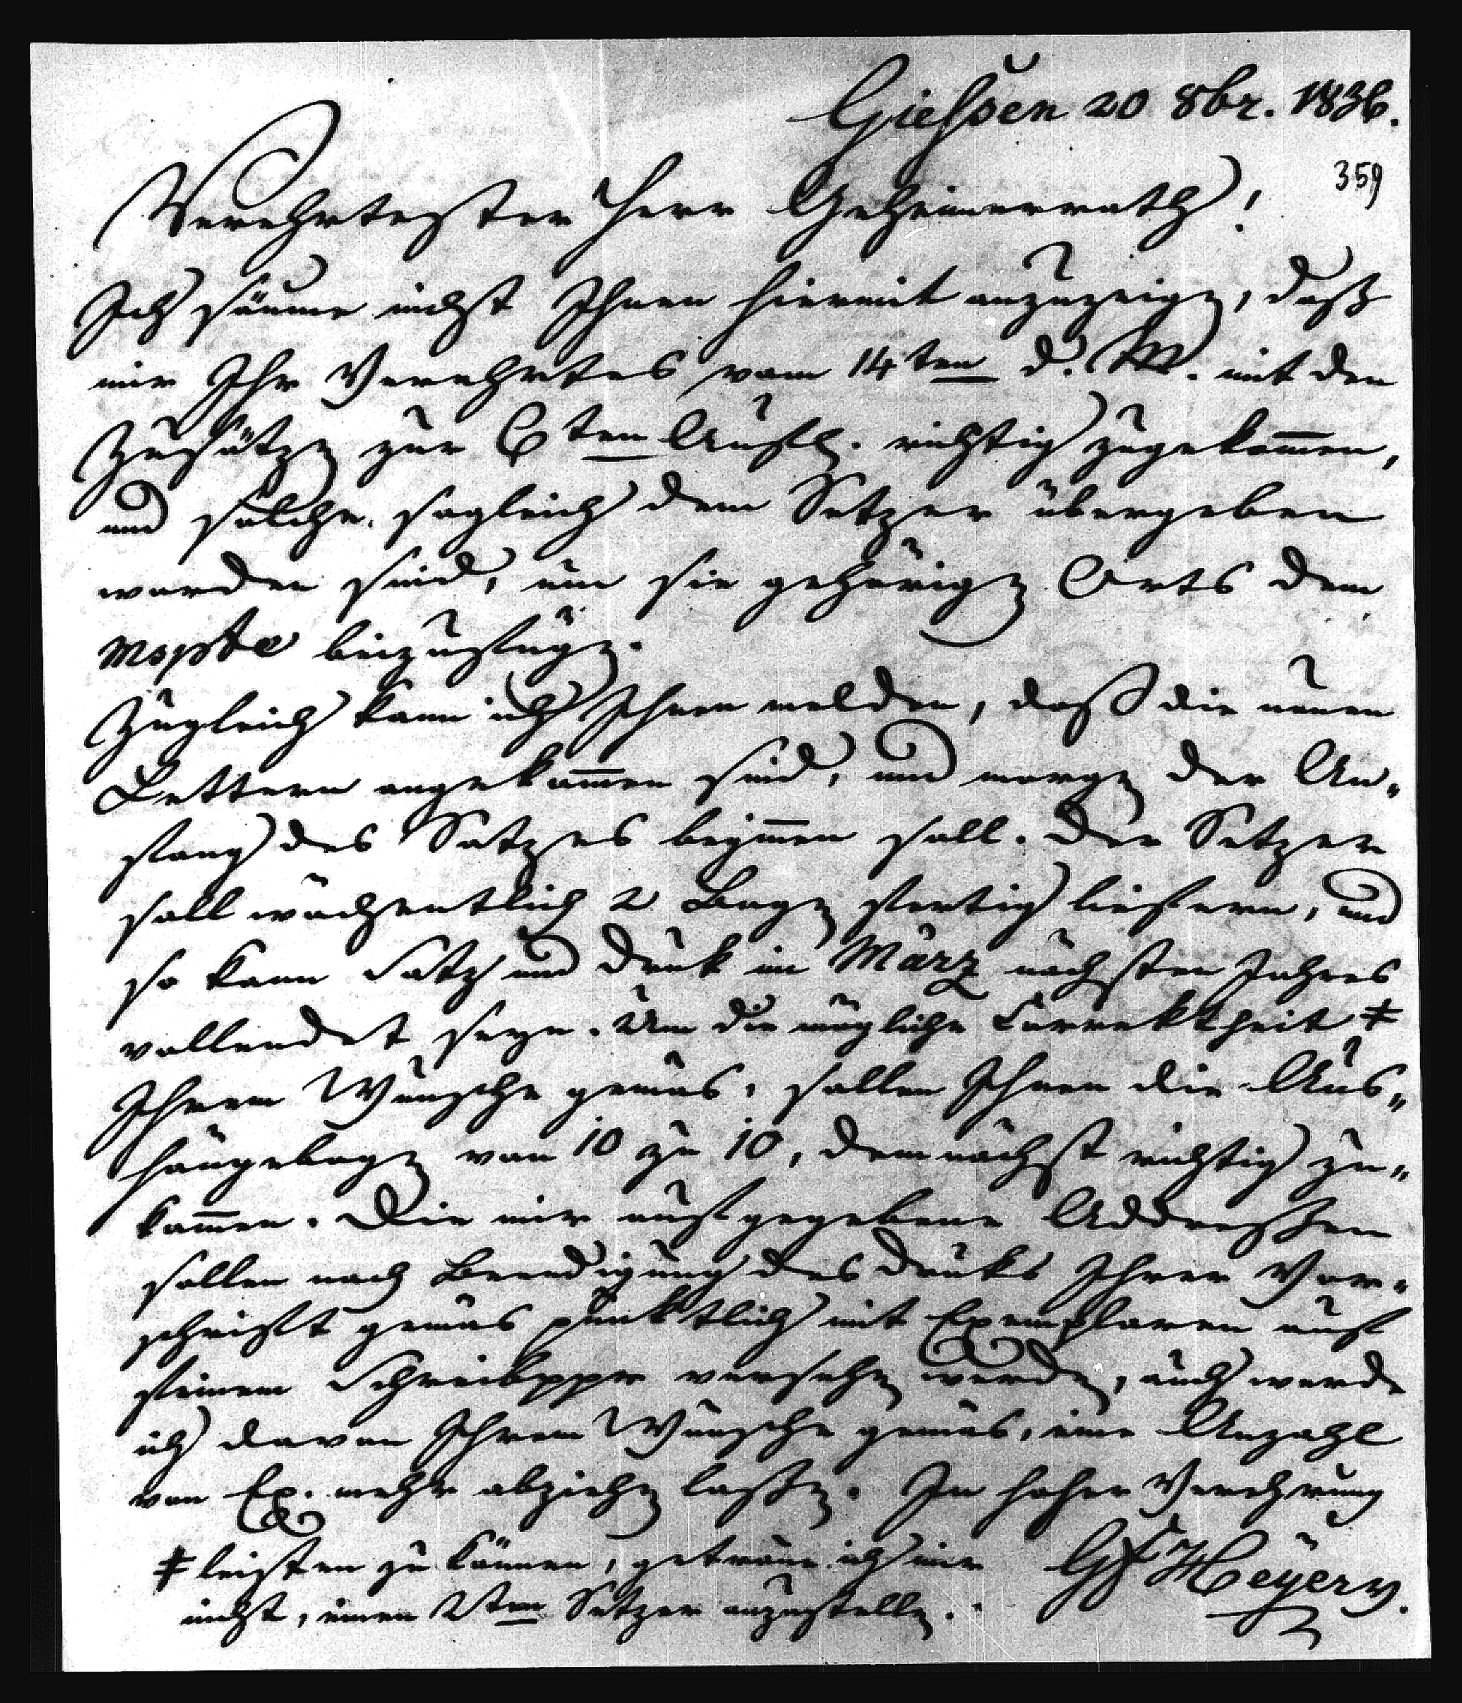 Giessen 20 8br. 1836.
359
Verehrtester Herr Geheimerrath!
Ich säume nicht Ihnen hiermit anzuzeigen, daß
mir Ihr Verehrtes vom 14ten d. M. mit den
Zusätzen zur 6ten Aufl. richtig zugekom̄en,
und solche sogleich dem Setzer übergeben
worden sind, um sie gehörigen Orts dem
Mspte beizufügen.
Zugleich kann ich Ihnen melden, daß die neuen
Lettern angekom̄en sind, und morgen der An-
fang des Satzes begin̄en soll. Der Setzer
soll wöchentlich 2 Bogen fertig liefern, und
so kann Satz und Druk im März nächsten Jahres
vollendet seyn. Um die mögliche Correktheit ⧧
Ihrem Wunsche gemäs, sollen Ihnen die Aus-
hängebogen von 10 zu 10, demnächst richtig zu-
kom̄en. Die mir aufgegebene Addressen
sollen nach Beendigung des Druks Ihrer Vor-
schrift gemäs pünktlich mit Exemplaren auf
feinem Schreibppr versehen werden, auch werde
ich davon Ihrem Wunsche gemäs, eine Anzahl
von Ex. mehr abziehen laßen. In hoher Verehrung
⧧ leisten zu können, getraue ich mir
nicht, einen 2ten Setzer anzustellen.
GF Heyer v.